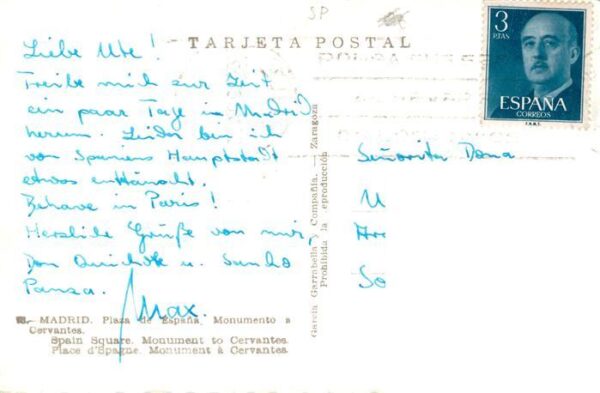 SP
TARJETA POSTAL
3
PTAS
ESPAÑA
CORREOS
F.N.M.T.
Liebe Ute!
Treibe mich zur Zeit
ein paar Tage in Madrid
herum. Leider bin ich
von Spaniens Hauptstadt
etwas enttäuscht.
Behave in Paris!
Herzliche Grüße von mir,
Don Quichote u. Sancho
Panza.
Max.
MADRID. Plaza de España. Monumento a
Cervantes.
Spain Square. Monument to Cervantes.
Place d'Espagne. Monument à Cervantes.
García Garrabella y Compañía. - Zaragoza
Prohibida la reproducción
Señorita Dona
U
So